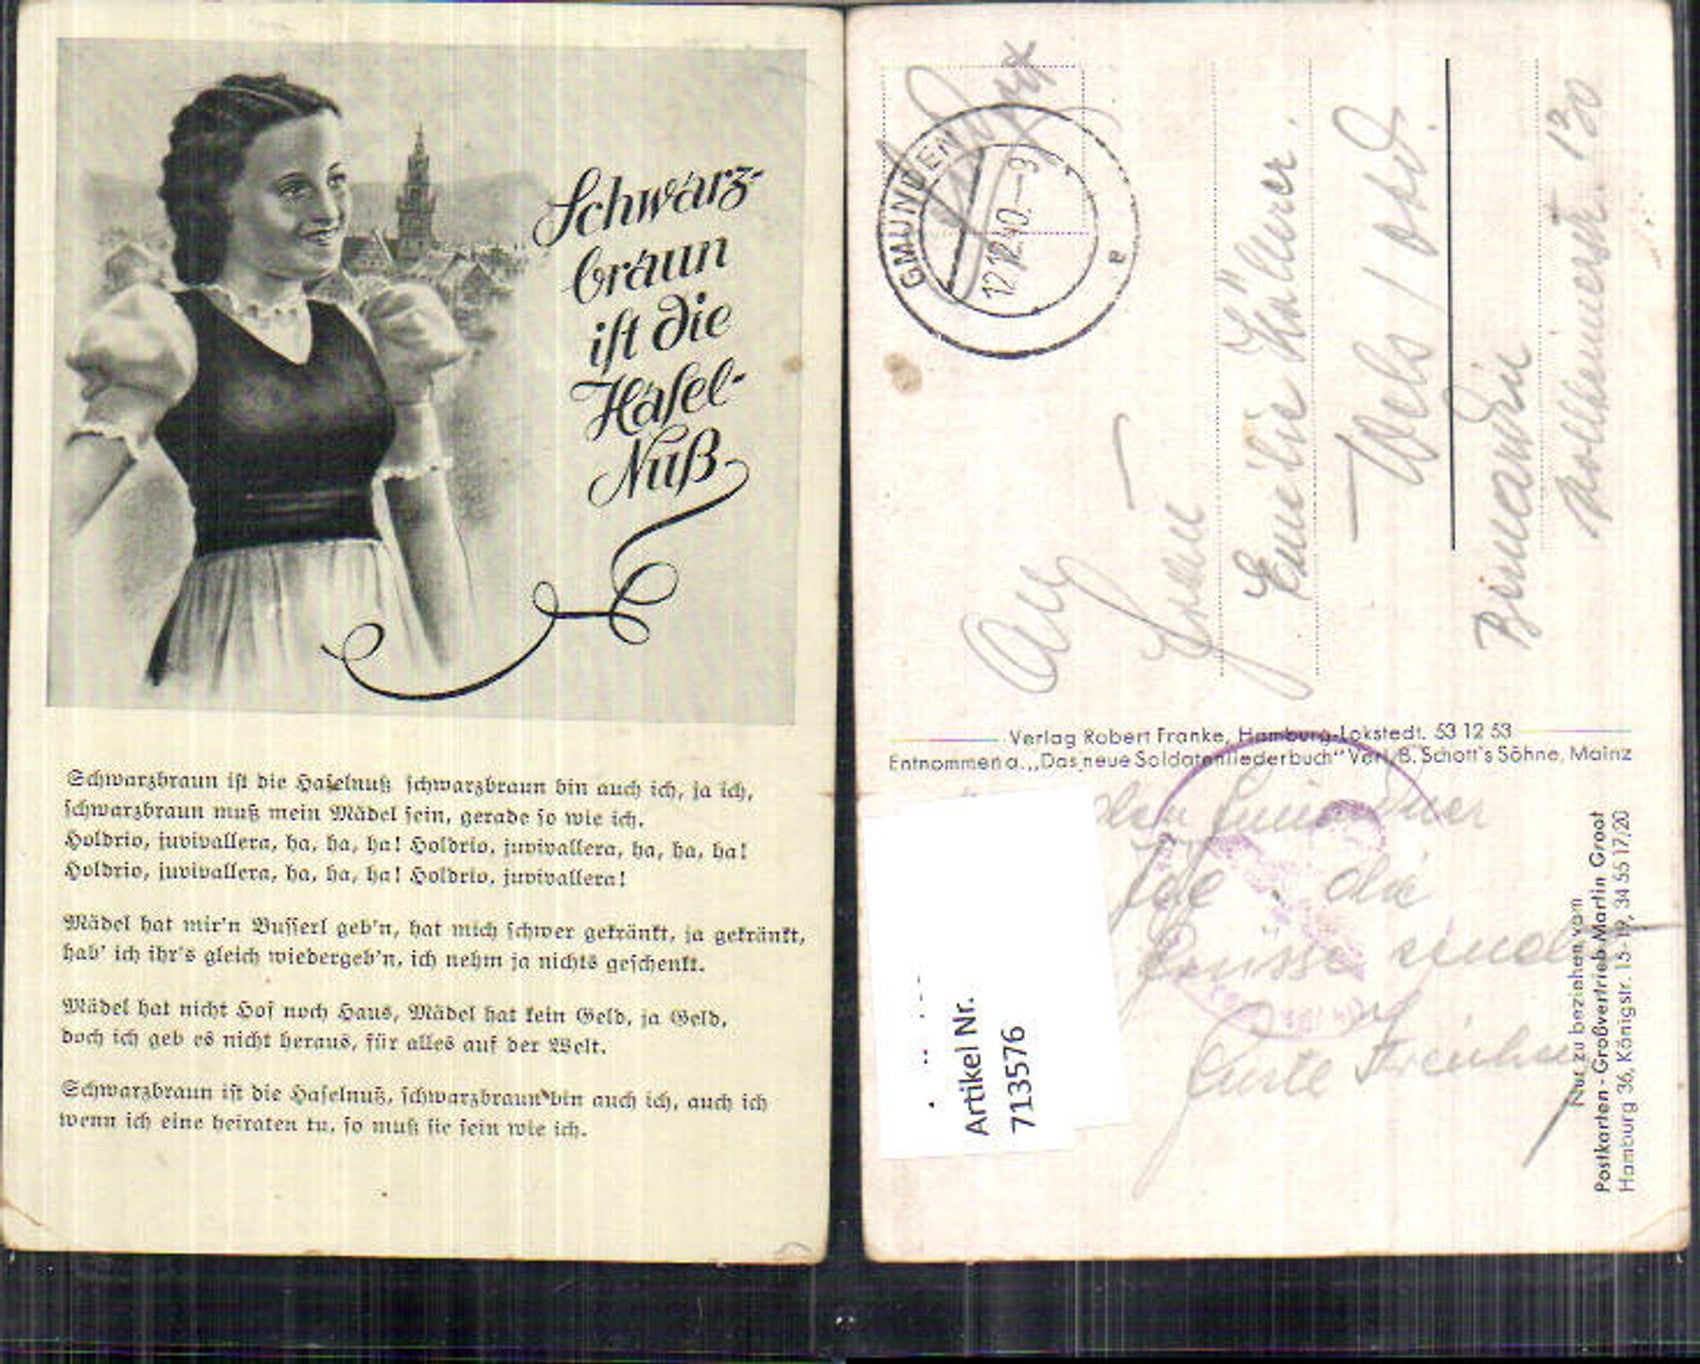 Schwarz-
braun
ist die
Hasel-
Nuß
Schwarzbraun ist die Haselnuß schwarzbraun bin auch ich, ja ich,
schwarzbraun muß mein Mädel sein, gerade so wie ich.
Holdrio, juvivallera, ha, ha, ha! Holdrio, juvivallera, ha, ha, ha!
Holdrio, juvivallera, ha, ha, ha! Holdrio, juvivallera!
Mädel hat mir'n Busserl geb'n, hat mich schwer gekränkt, ja gekränkt,
hab' ich ihr's gleich wiedergeb'n, ich nehm ja nichts geschenkt.
Mädel hat nicht Hof noch Haus, Mädel hat kein Geld, ja Geld,
doch ich geb es nicht heraus, für alles auf der Welt.
Schwarzbraun ist die Haselnuß, schwarzbraun bin auch ich, auch ich
wenn ich eine heiraten tu, so muß sie sein wie ich.
GMUNDEN
12.12.40.-9
e
Wels /
130
Verlag Robert Franke, Hamburg-Lokstedt. 53 12 53
Entnommen a. „Das neue Soldatenliederbuch" Verl. B. Schott's Söhne, Mainz
die
Grüsse und
Nur zu beziehen vom
Postkarten-Großvertrieb Martin Groot
Hamburg 36, Königstr. 15-19, 34 55 17/20
Artikel Nr.
713576